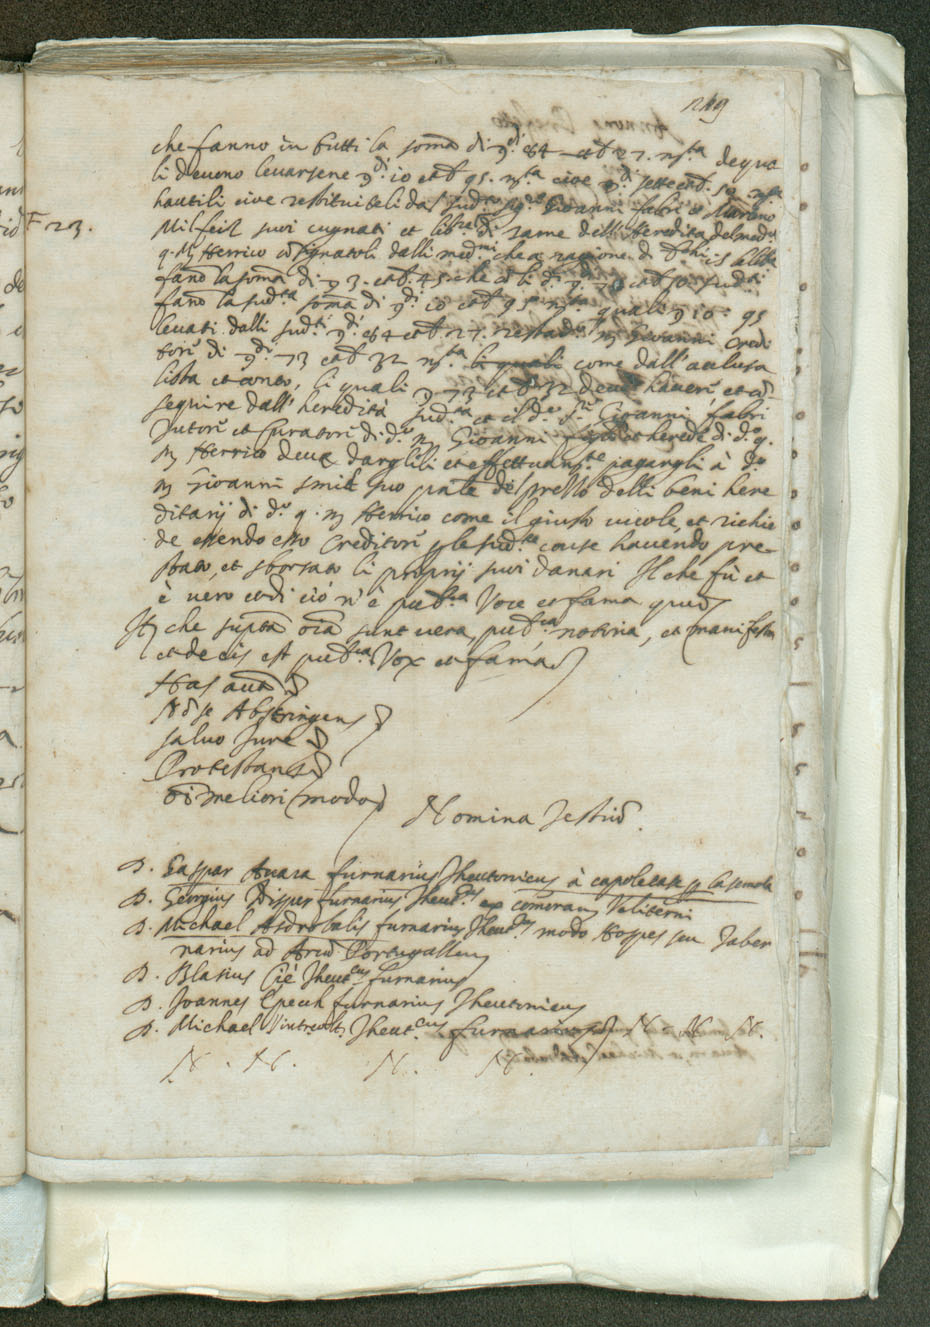 249
che fanno in tutti la soma di 84 et b 27. m.ta de qua
li devono levarsene 10 et b 95. m.ta cive sette et b. 50 m.ta
hautili cive restituiteli da Giovanni fabri et Martino
F 23.
Milfeil suoi cugnati et di rame dell'heredità del med.o
q. M Herrico cosignatoli dalli med.mi che a ragione di
fano la soma di 3. et b. 45. che
fano la sud.ta soma di 10 et b 95 m.ta quali 10: 95
levati dalli sud.ti 84 et b 27. resta M Giovanni credi
tore di 73 et b 32 m.ta li quali come dall'aclusa
lista et conto, li quali 73 et b 32 deve havere et co
seguire dall'heredità sud.ta et il d.o Giovanni fabri
Tutore et Curatore di d.o M Giovanni figlio et herede di d.o q.
M Herrico deve darglili et effettuam.te pagargli à d.o
M Giovanni smit suo pnte del prezzo delli beni here
ditarij di d.o q. M Herrico come il giusto vuole, et richie
de essendo esso Creditore p le sud.te cause havendo pre-
stato, et sborsato li proprij suoi danari Il che fù et
è vero et di ciò n'è pub.ca Voce et fama
It che supta oia sunt vera, pub.ca notoria, et manifesta
et de eis est pub.ca Vox et fama
Has aut
No se Abstringens
salvo Jure
Protestans
oi meliori modo
Nomina Testiu
D. Gaspar Avara furnarius Theutonicus à capolecase p la semola
D. Georgius Disper furnarius Theut.cus ex comorans Veliterni
D. Michael Asdrobalis furnarius Theut.cus modo Hospes seu Taber
narius ad Arcu Portugallens
D. Blasius Ciè Theut.cus furnarius
D. Joannes Specch furnarius Theutonicus
D. Michael Vintrcolt. Theut.cus furnarius N. N. N.
N. N. N. N.